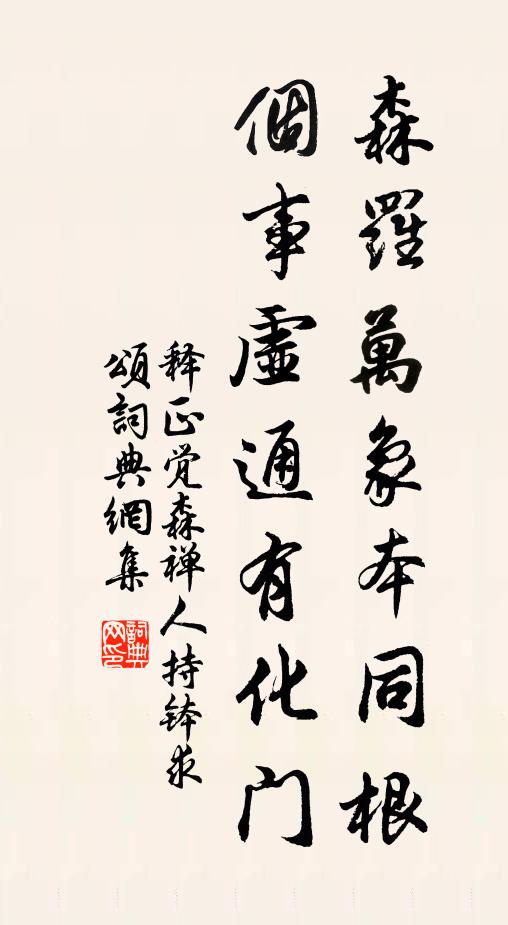 森羅萬象本同根
個事虛通有化門
释正觉森禅人持钵求
頌詞典網集
詞典网印